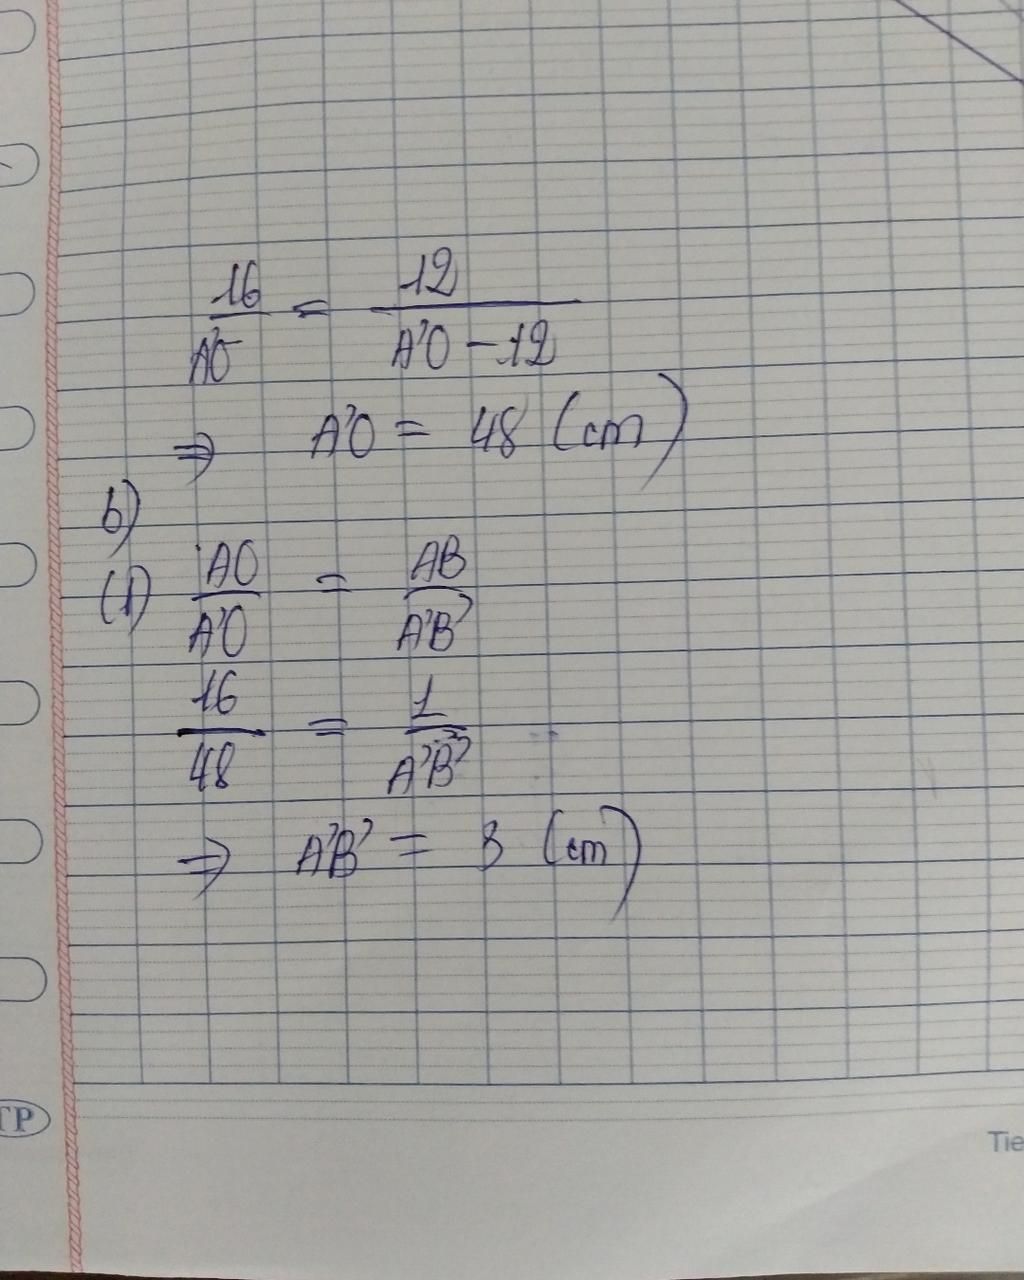 16/A'O = 12/A'O - 12
⇒ A'O = 48 (cm)
b)
(1) AO/A'O = AB/A'B'
16/48 = 1/A'B'
⇒ A'B' = 3 (cm)
TP
Tie